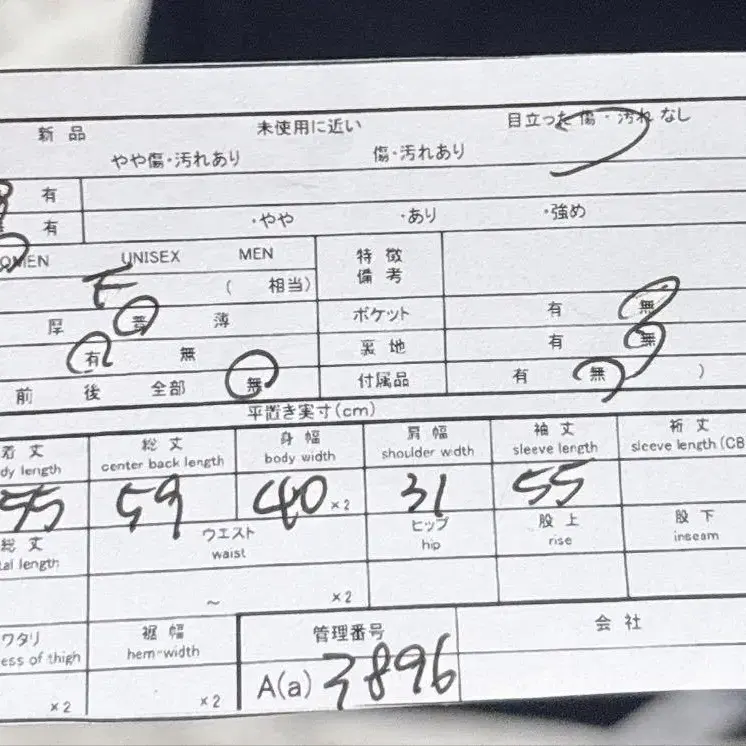 新品 未使用に近い 目立った傷・汚れ なし
やや傷・汚れあり 傷・汚れあり
有
有 ・やや ・あり ・強め
OMEN UNISEX MEN 特徴
備考
F ( 相当)
厚 普 薄 ポケット 有 無
有 無 裏地 有 無
前 後 全部 無 付属品 有 無 )
平置き実寸(cm)
着丈 総丈 身幅 肩幅 袖丈 裄丈
dy length center back length body width shoulder wdth sleeve length sleeve length (CB
55 59 40 ×2 31 55
総丈 ウエスト ヒップ 股上 股下
al length waist hip rise inseam
~ ×2
ワタリ 裾幅 管理番号 会社
ess of thigh hem-width
×2 ×2 A(a) 3896